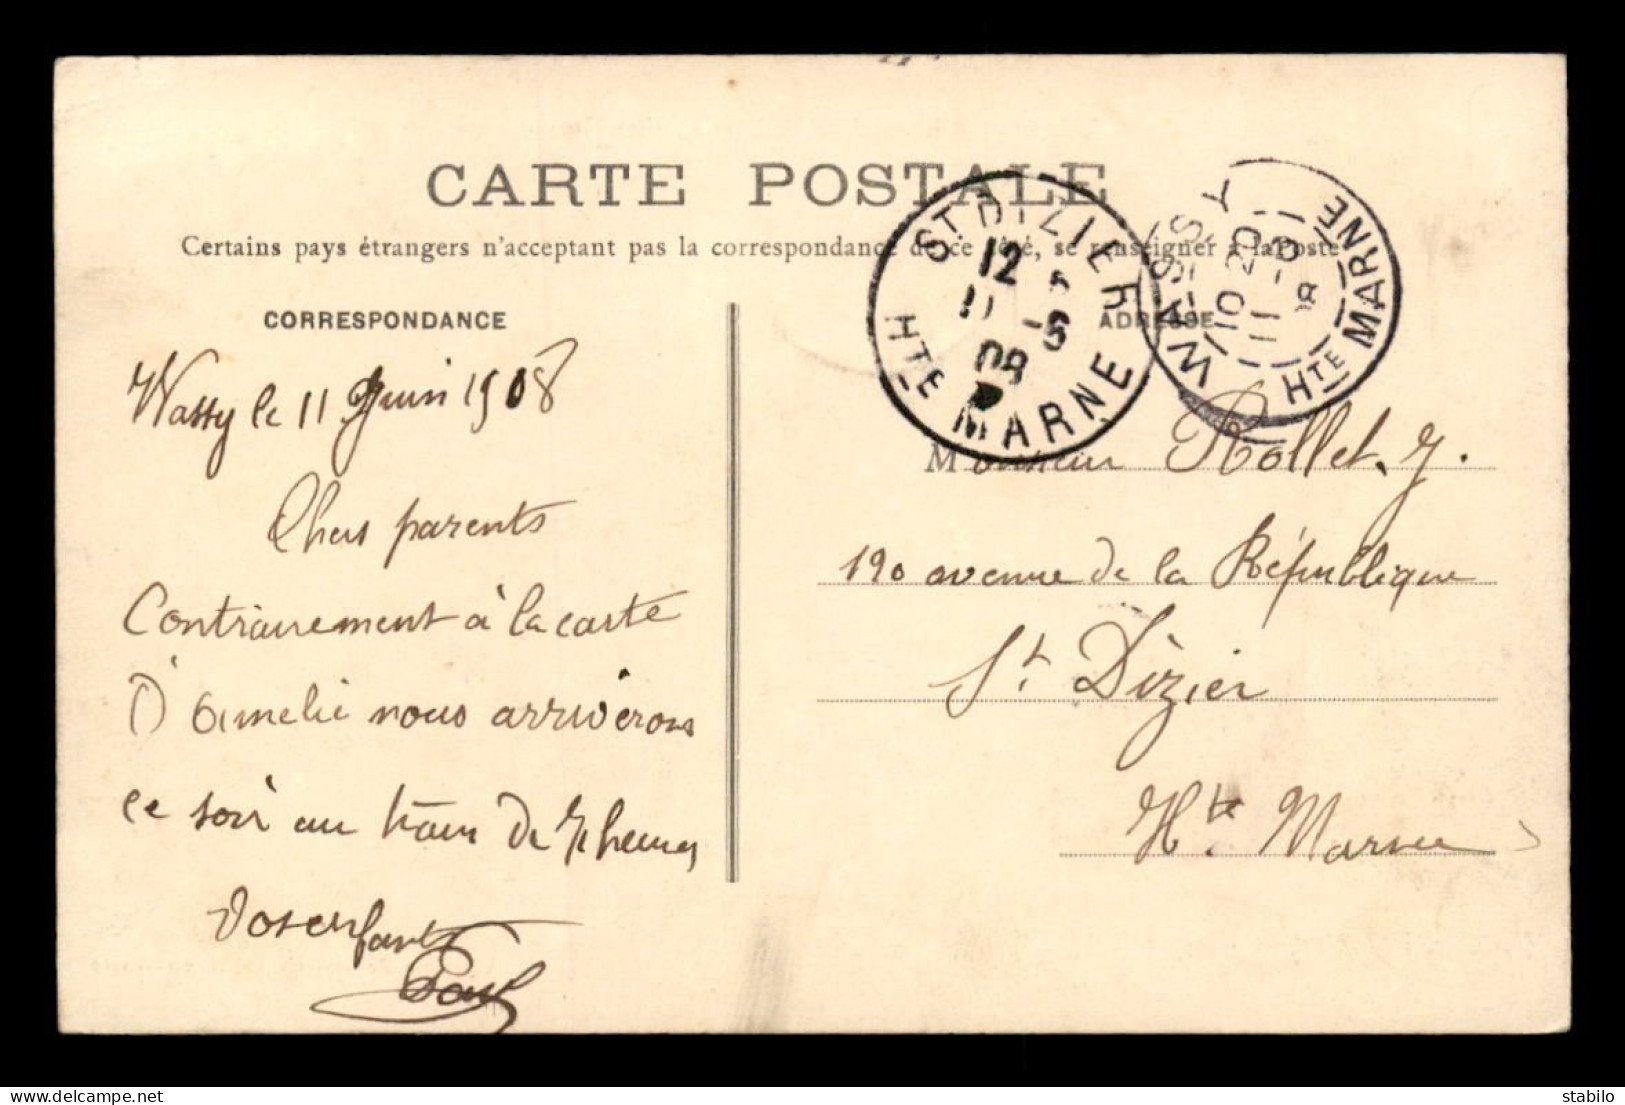 CARTE POSTALE
Certains pays étrangers n'acceptent pas la correspondance de ce côté, se renseigner à la Poste
CORRESPONDANCE
Wassy le 11 Juin 1908
Chers parents
Contrairement à la carte
D'Amelie nous arriverons
ce soir au train de 7 heures
Vos enfants
Paul
ST DIZIER
12
11 -6
08
HTE MARNE
WASSY
10 20
11 -6
08
HTE MARNE
ADRESSE
Monsieur Rollet. J.
190 avenue de la République
St. Dizier
Hte. Marne
stabilo
delcampe.net